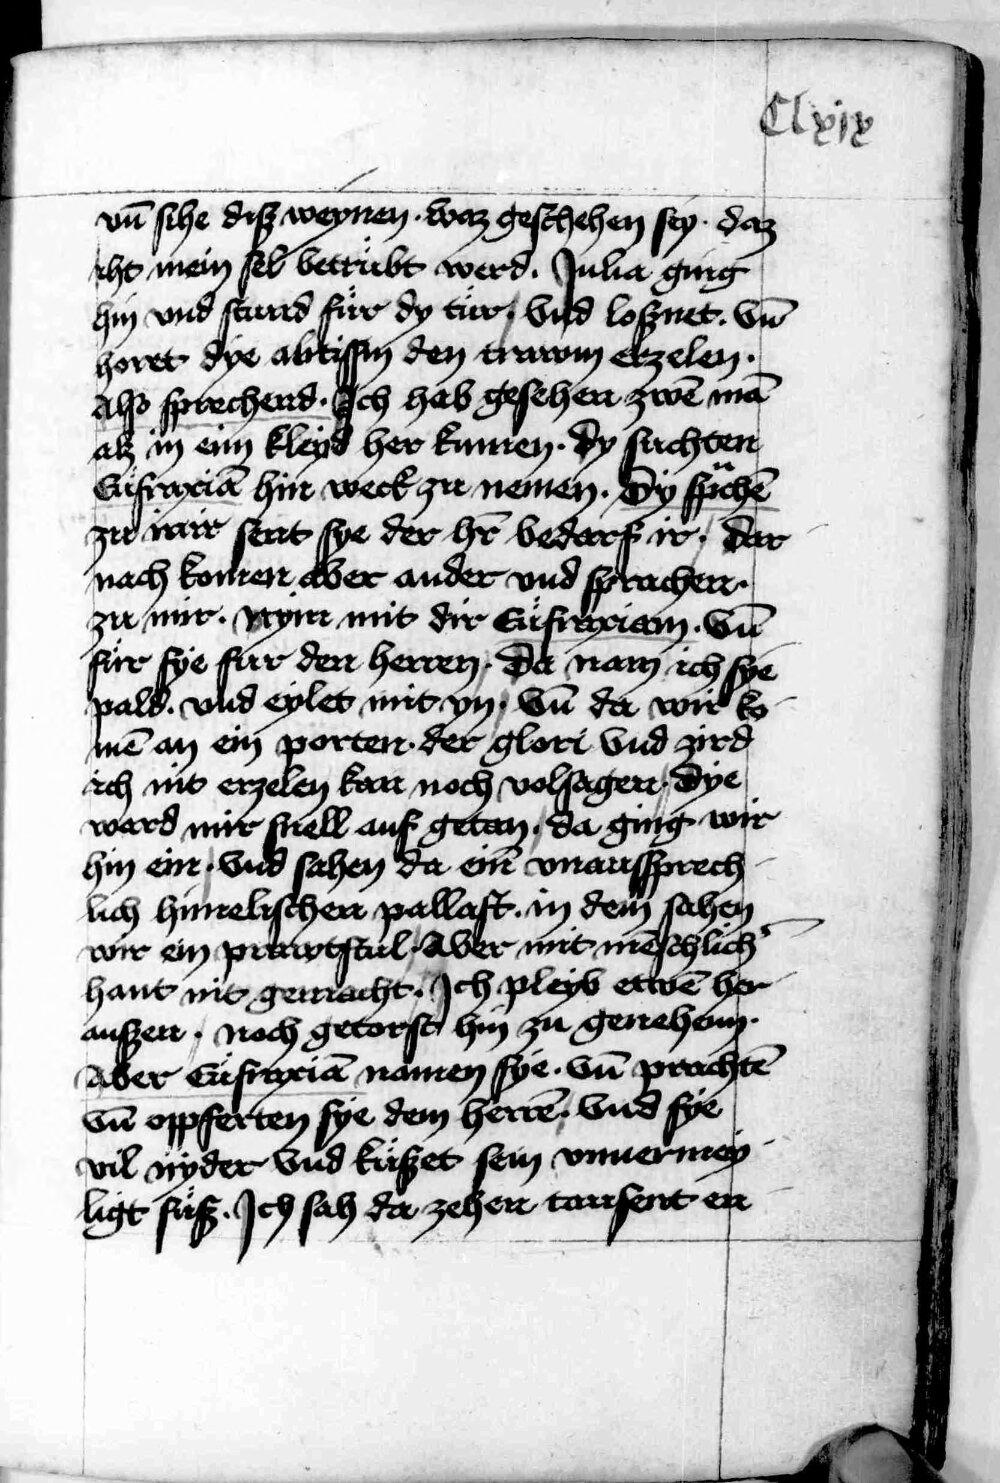 Clxix
vn̄ sihe disz weynen · waz geschehen sey · daz
iht mein sel betrübt werd . Julia ging
hin vnd stund für dy tür . Vnd losznet . Vn̄
horet dye abtissin den trawm erzelen .
Also sprechend . Ich hab gesehen zwē mā
alz in eim kleyd her kumen . Dy suchten
Eüfraxiā hin weck zu nemen . Dy sp̈chē
zu mir sent sye der hr̄ bedarf ir . Dar
nach komen aber ander vnd sprachen .
zu mir . nym mit dir Eüfraxiam . Vn̄
für sye fur den herren . Da nam ich sye
pald . vnd eylet mit yn . Vn̄ da wir ko
mē an ein porten . der glori Vnd zird
ich nit erzelen kan noch volsagen . Dye
ward mir snell auf getan . da ging wir
hin ein . Vnd sahen da ein̄ vnaussprech
lich himelischen pallast . in dem sahen
wir ein prawtstul . Aber mit mēschlich̾
hant nit gemacht . Ich pleyb etwē her
auszen . noch getorst hin zu genehenn .
Aber Eüfraxiā namen sye . vn̄ prachtē
vn̄ oppferten sye dem herrē . Vnd sye
vil nyder Vnd küszet sein vnuermey
ligt füsz . Ich sah da zehen tausent en